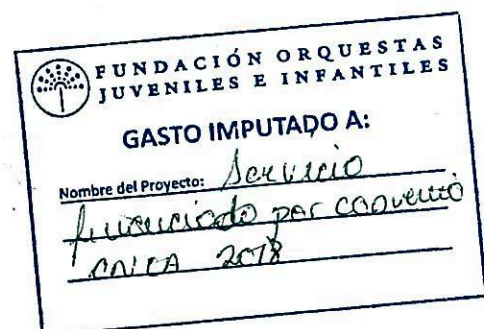 FUNDACIÓN ORQUESTAS
JUVENILES E INFANTILES
GASTO IMPUTADO A:
Nombre del Proyecto: Servicio
financiado por convenio
2018